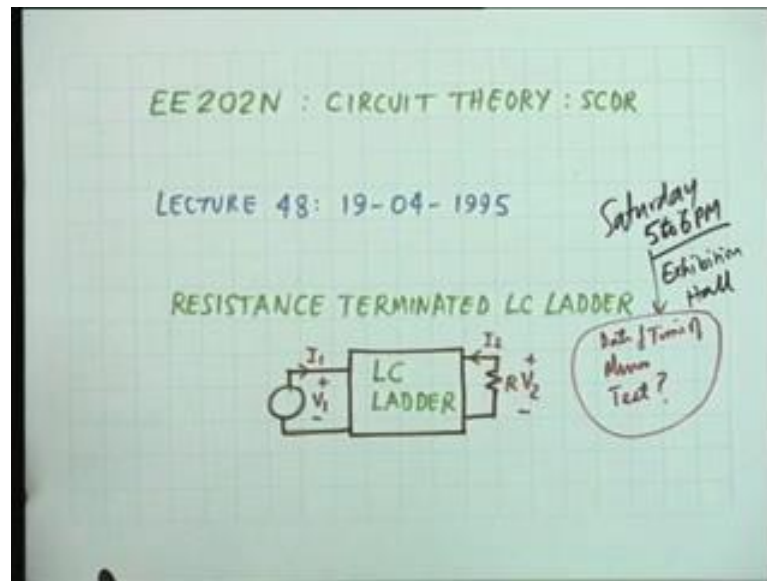 EE202N : CIRCUIT THEORY : SCDR
LECTURE 48: 19-04-1995
Saturday
5 to 6 PM
Exhibition
Hall
RESISTANCE TERMINATED LC LADDER
I1
+
V1
-
LC
LADDER
I2
R
+
V2
-
Test?